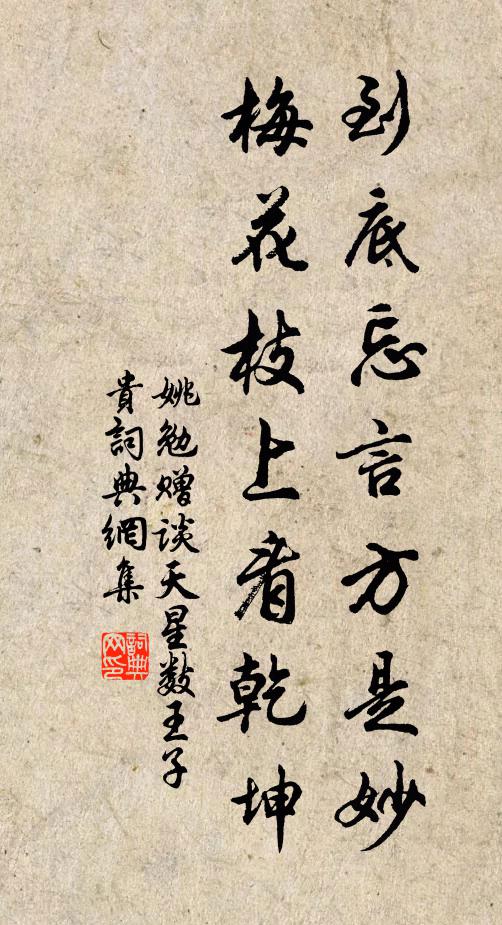 到底忘言方是妙
梅花枝上看乾坤
姚勉赠谈天星数王子
貴詞典網集
詞典
网印